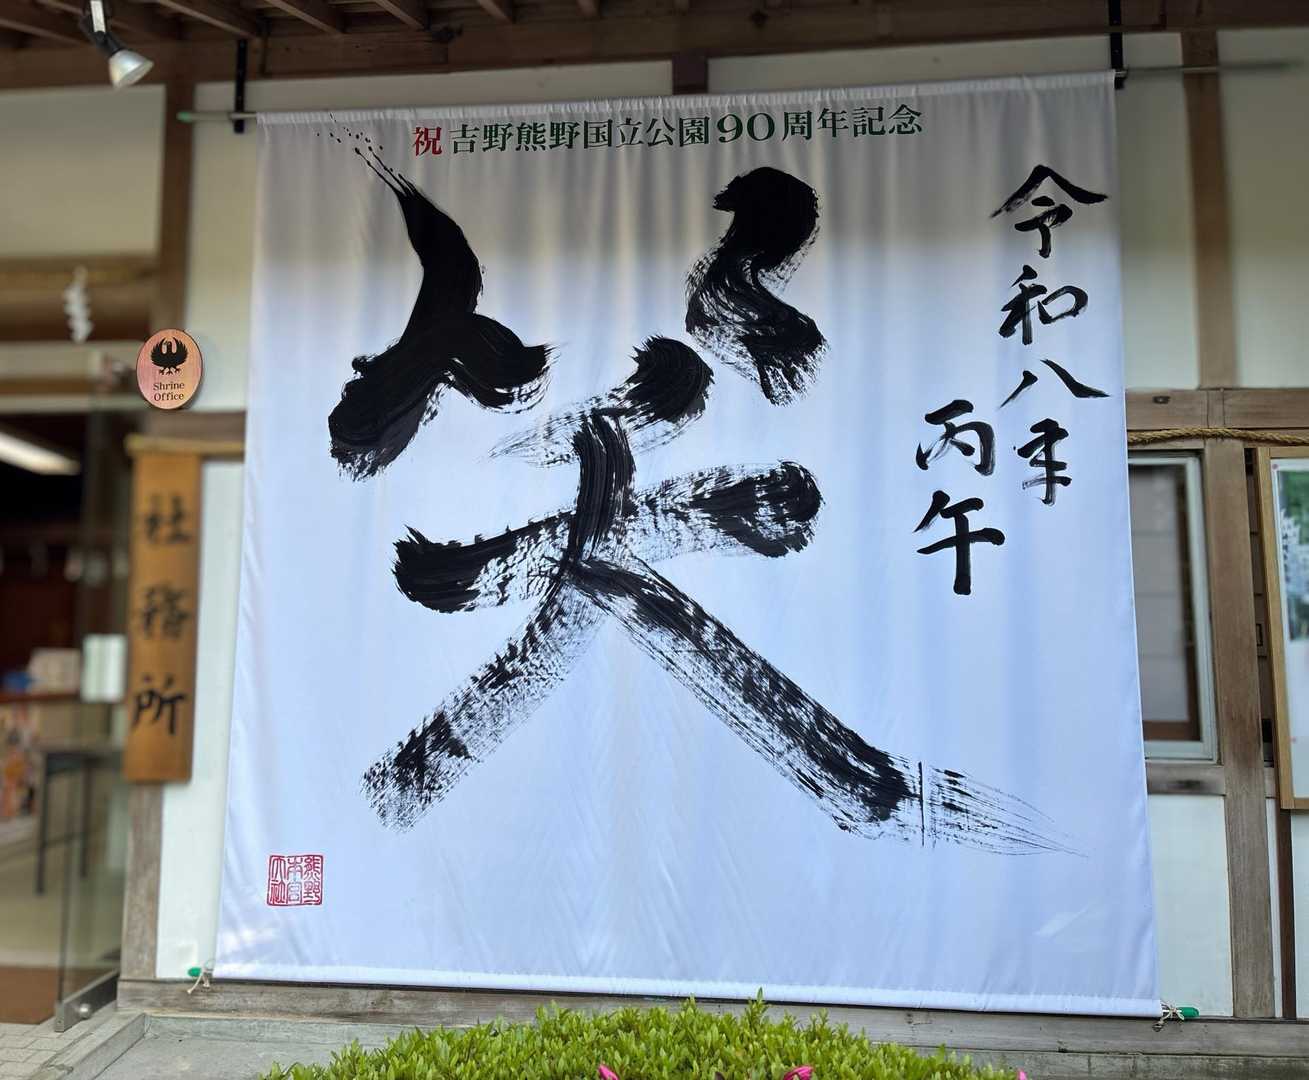 祝 吉野熊野国立公園90周年記念
令和八年
丙午
笑
熊野
本宮
大社
Shrine
Office
社務所